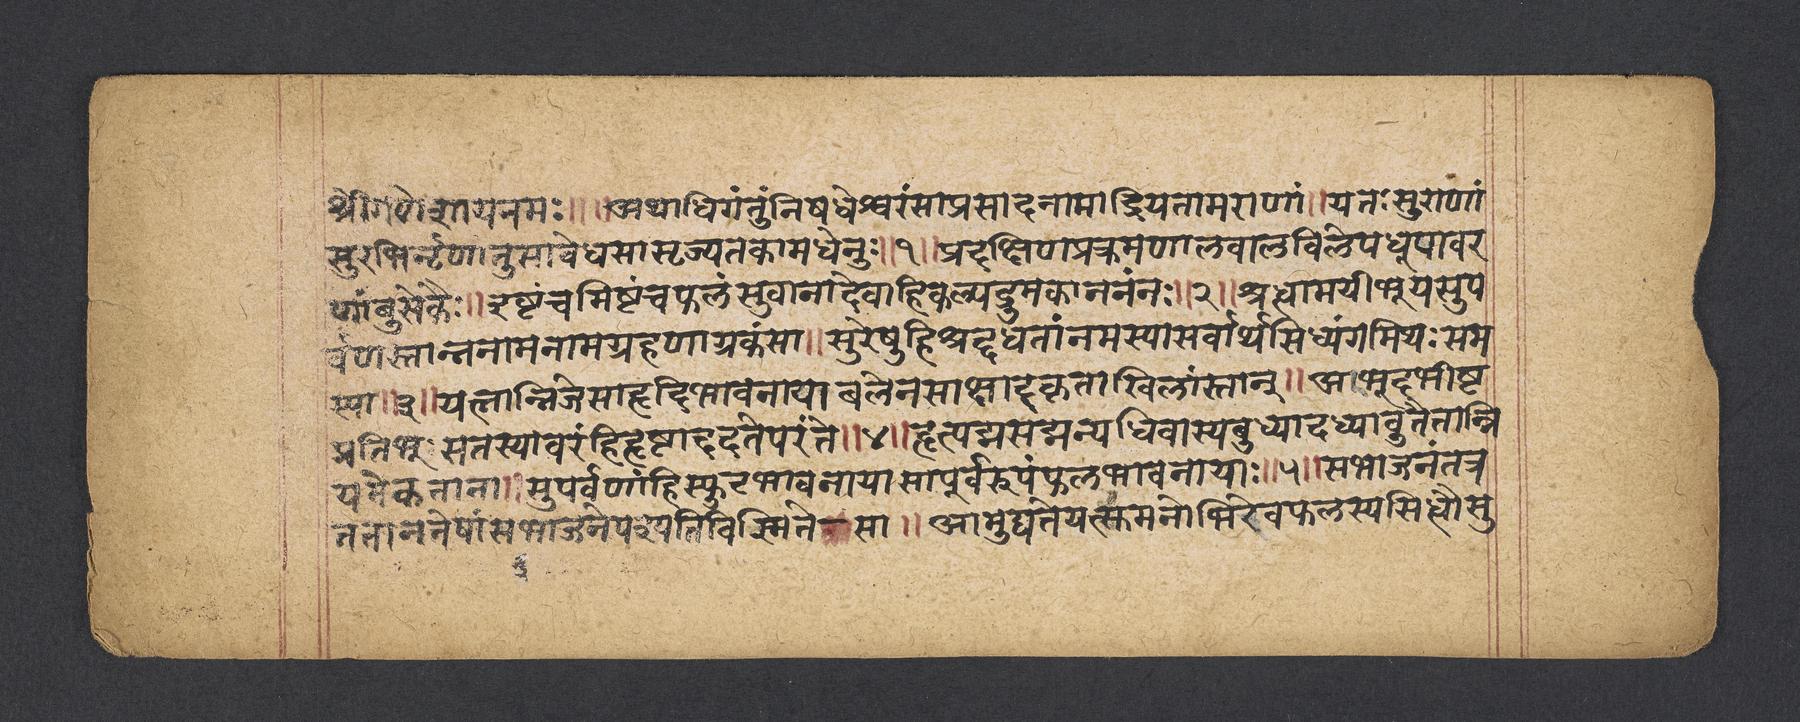 श्रीगणेशायनमः॥ ॥अथाधिगंतुंनिषधेश्वरंसाप्रसादनामाद्रियतामराणां॥यतःसुराणां
सुरभिर्नृणानुसावेधसासृज्यतकामधेनुः॥१॥प्रदक्षिणप्रक्रमणालवालविलेपधूपावर
णांबुसेकैः॥इष्टंचमिष्टंचफलंसुवानादेवाहिकल्पद्रुमकाननंनः॥२॥श्रद्धामयीभूयसुप
र्वणस्तान्ननामनामग्रहणाग्रकंसा॥सुरेषुहिश्रद्दधतांनमस्यासर्वार्थसिध्यंगमिथःसम
स्या॥३॥यत्तान्निजेसाहृदिभावनायाबलेनसाक्षादकृताखिलांस्तान्॥अभूदभीष्ट
प्रतिभूःसतस्यावरंहिदृष्टाददतेपरंते॥४॥हृत्पद्मसद्मन्यधिवास्यबुध्यादध्यावुतैतान्नि
यमैकताना॥सुपर्वणांहिस्फुटभावनायासापूर्वरूपंफलभावनायाः॥५॥सभाजनंतत्र
ततानतेषांसभाजनेपश्यतिविस्मितेसा॥आमुद्यतेयत्सुमनोभिरेवफलस्यसिध्दौसु